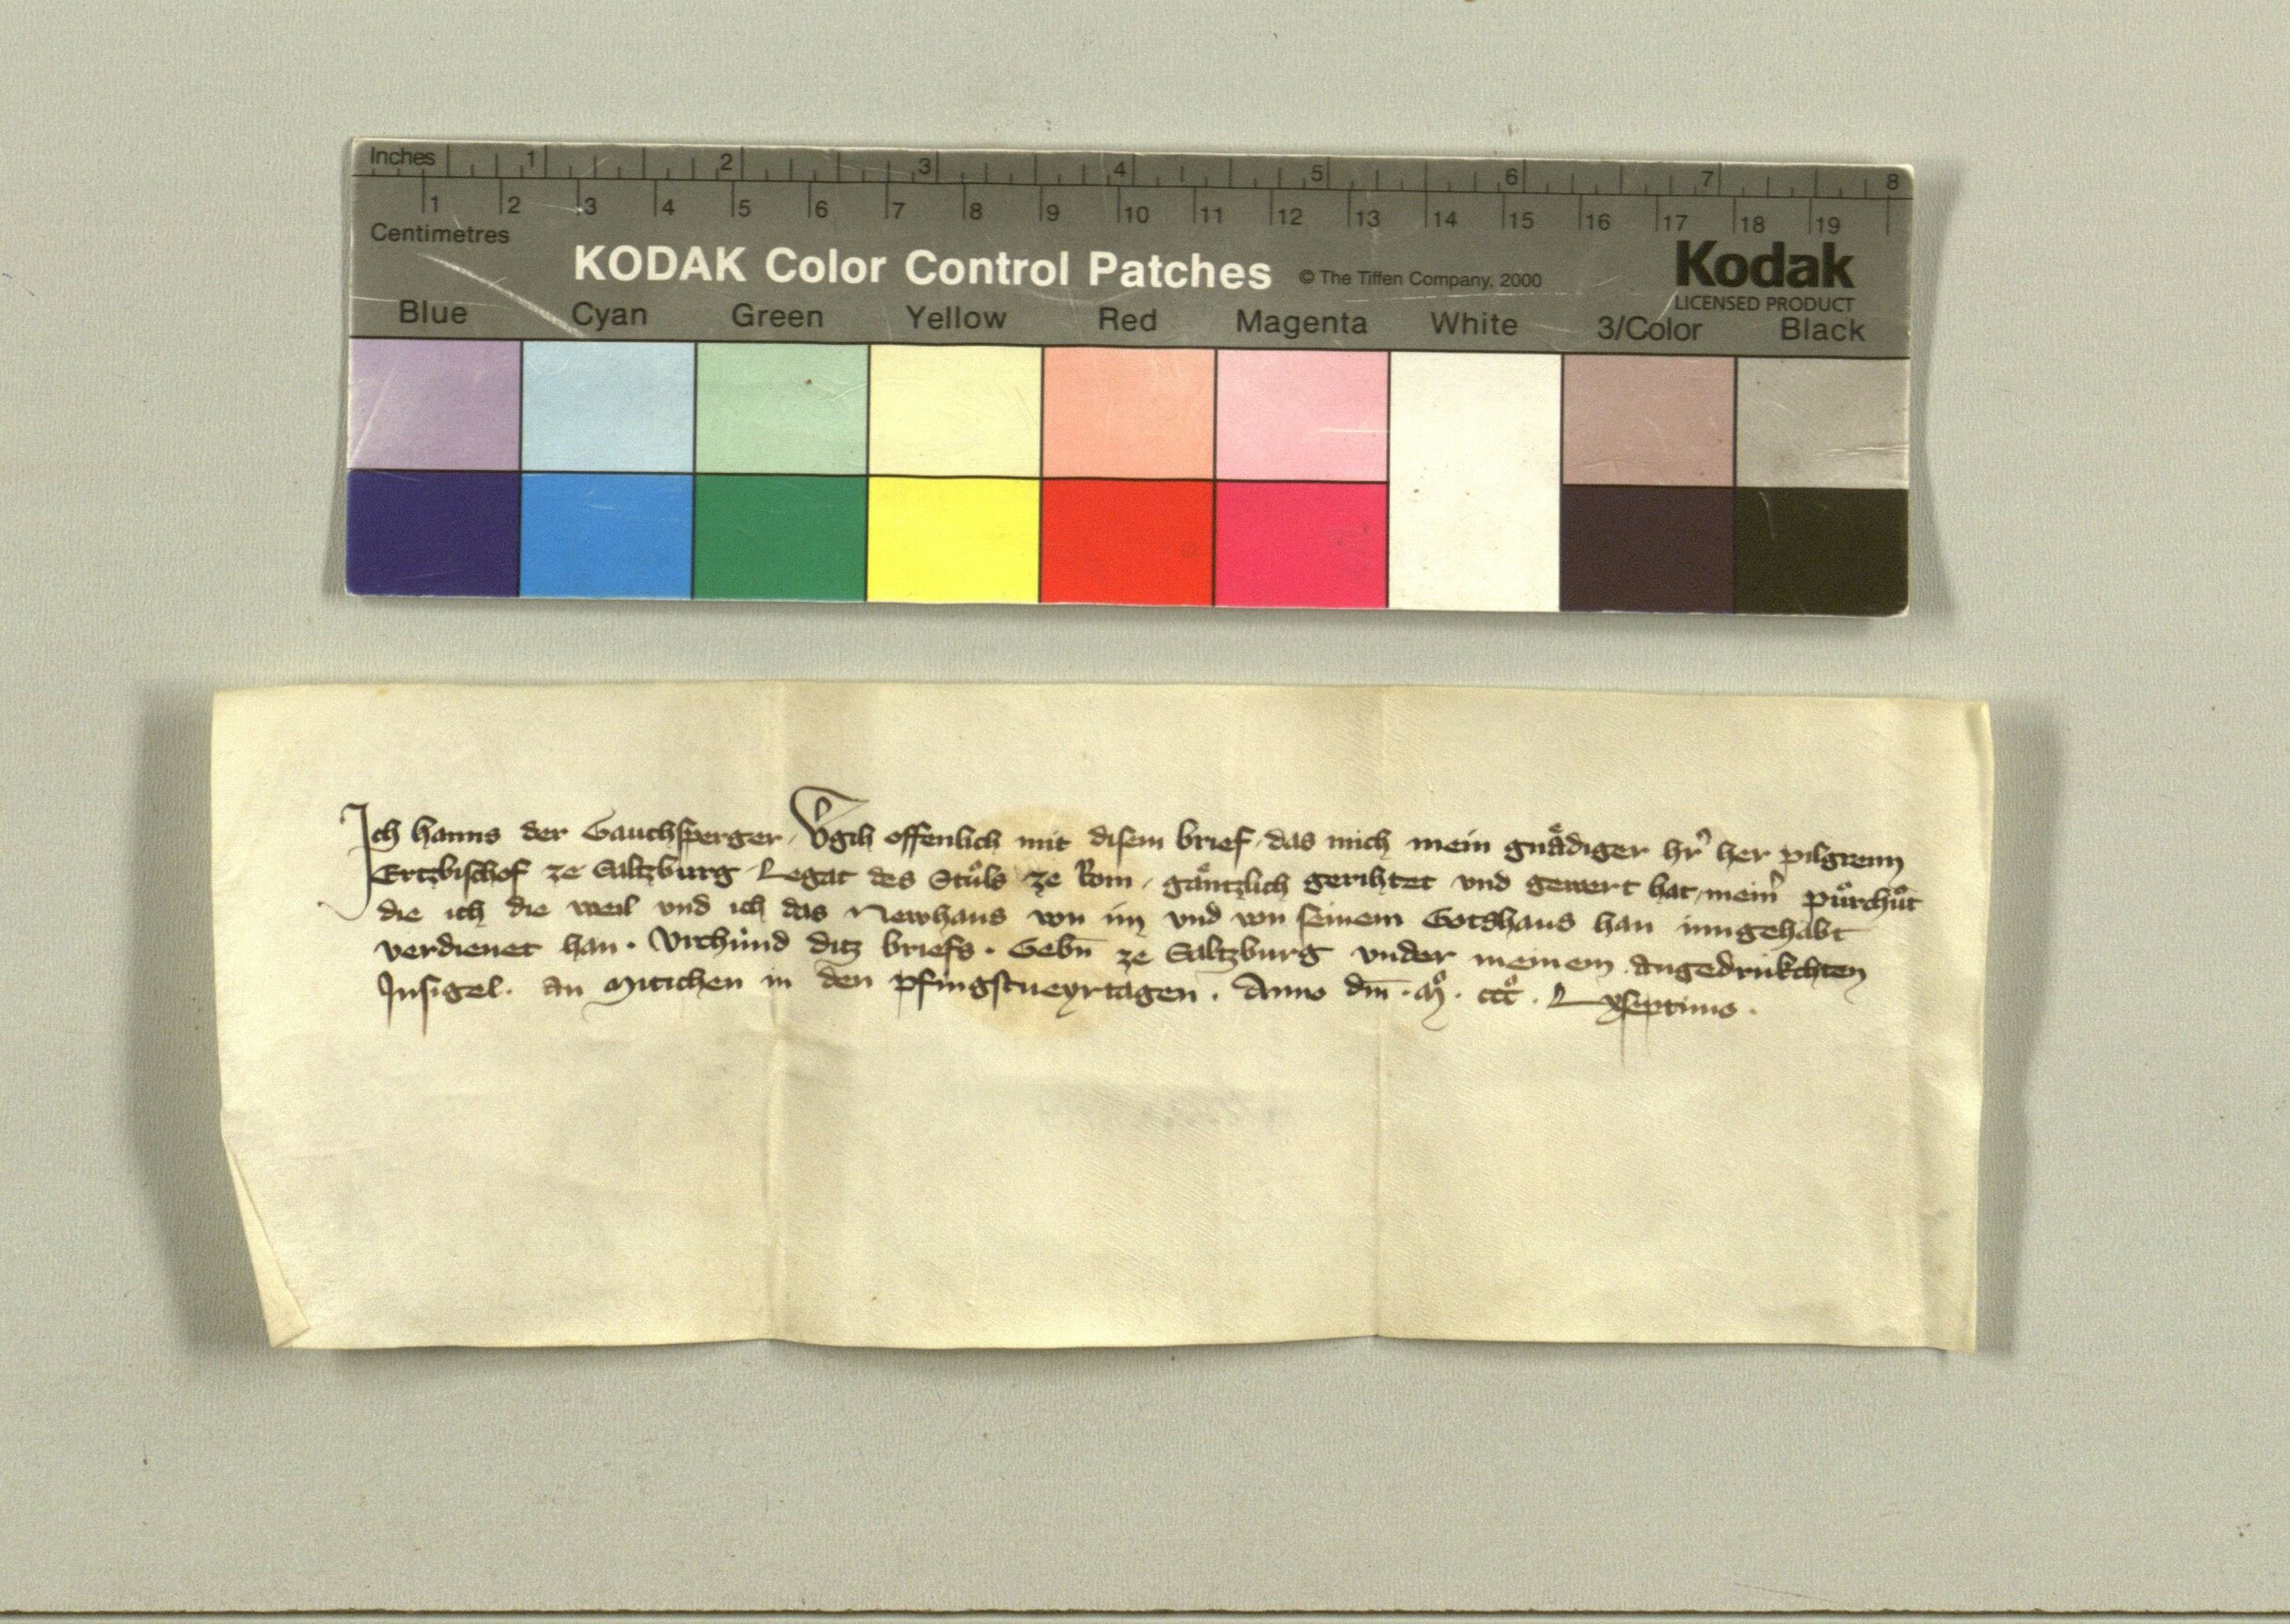 Inches 1 2 3 4 5 6 7 8
1 2 3 4 5 6 7 8 9 10 11 12 13 14 15 16 17 18 19
Centimetres
KODAK Color Control Patches © The Tiffen Company, 2000 Kodak
LICENSED PRODUCT
Blue Cyan Green Yellow Red Magenta White 3/Color Black
Ich hanns der Gauchsperger Vgih offenlich mit disem brief das mich mein gnaͤdiger hr̄ her pilgreim
Ertzbischof ze Saltzburg Legat des Stuͦls ze Rom gaͤntzlich gerihtet vnd gewert hat mein̄ puͦrchuͦt
die ich die weil vnd ich das Newhaus von im vnd von seinem Gotshaus han inngehabt
verdienet han · Vrchund ditz briefs · Gebn̄ ze Saltzburg vnder meinem angedrukchten
Insigel · an Mitichen in den pfingstueyrtagen · Anno dm̄ · Mͦ · cccͦ · Lxseptimo ·